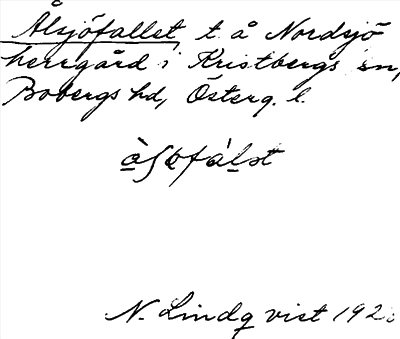 Ålsjöfallet t. å Nordsjö
herrgård i Kristbergs sn,
Bobergs hd, Österg. l.
N. Lindqvist